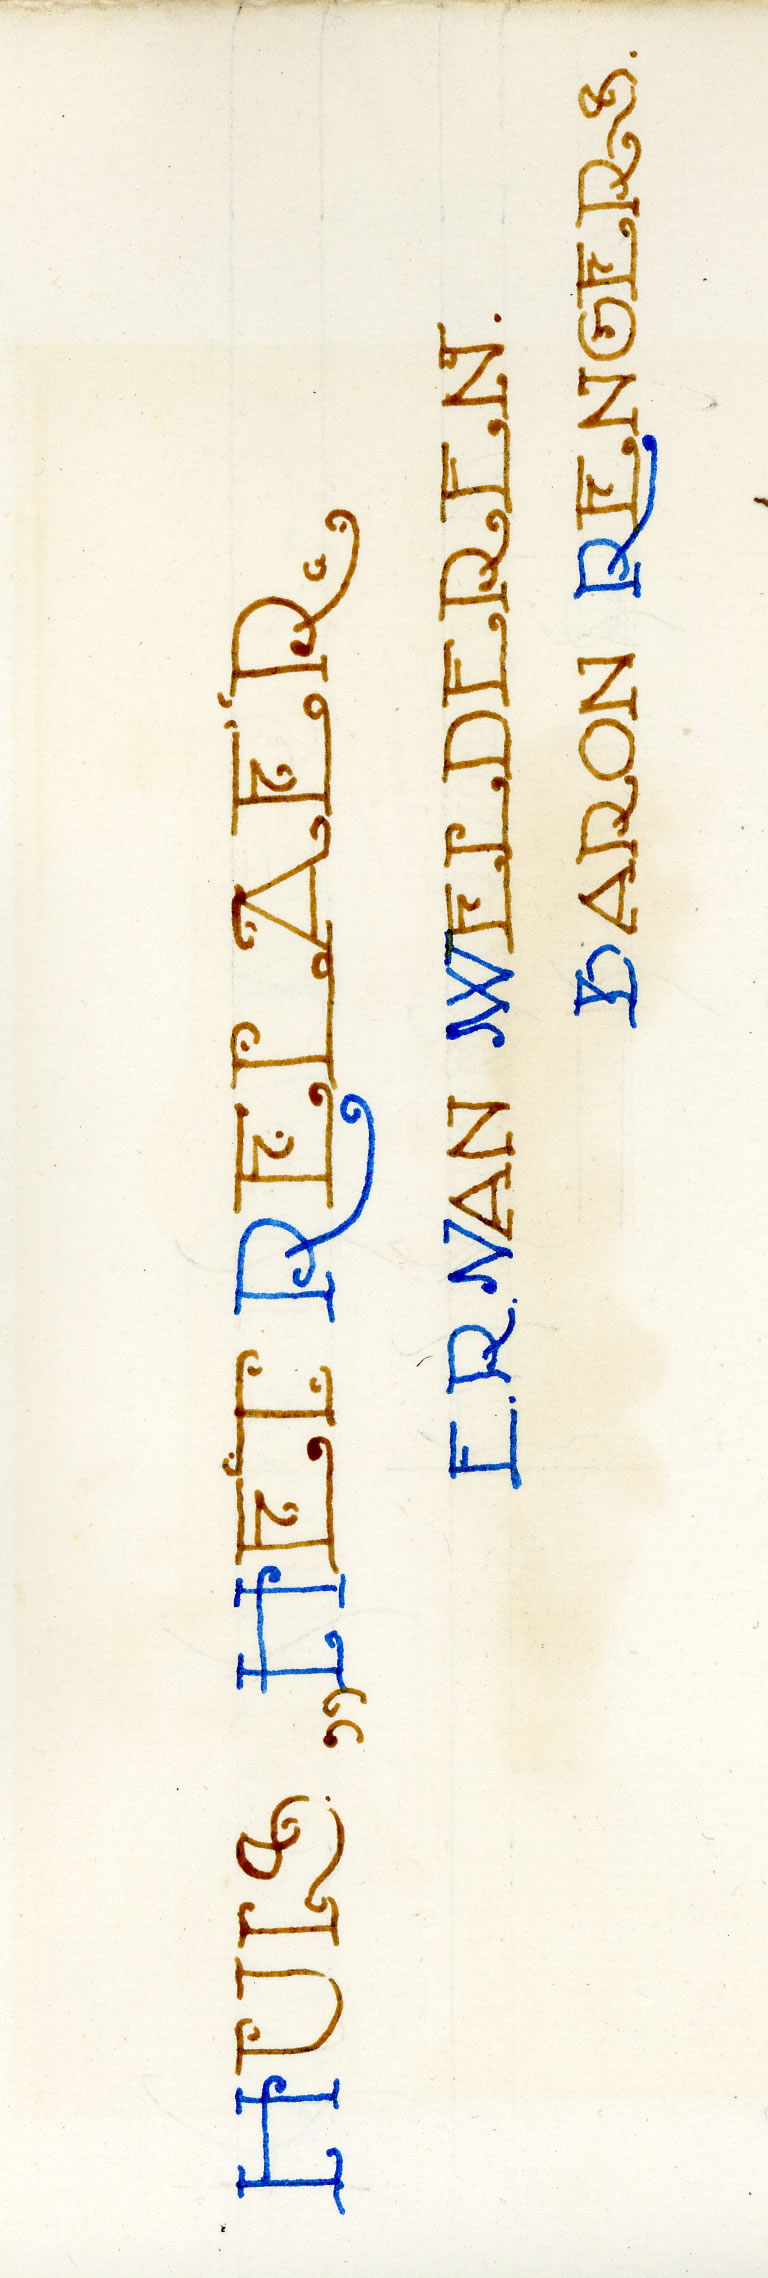 HUIS „HET RELAER.
E.R. VAN WELDEREN.
BARON RENGERS.